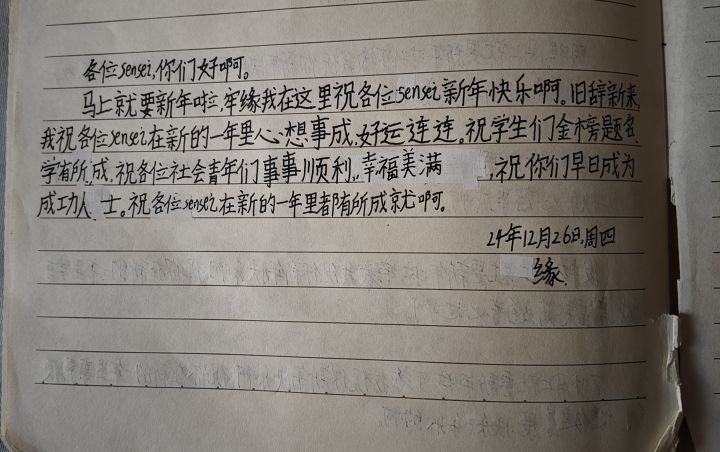 各位sensei,你们好啊。
马上就要新年啦,牢缘我在这里祝各位sensei新年快乐啊。旧辞新来,
我祝各位sensei在新的一年里心想事成,好运连连。祝学生们金榜题名
学有所成,祝各位社会青年们事事顺利,幸福美满,祝你们早日成为
成功人士。祝各位sensei在新的一年里都有所成就啊。
24年12月26日,周四
缘.